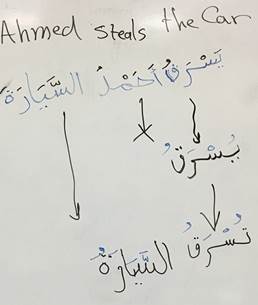 Ahmed steals the Car
يَسْرَقُ أَحَمْدُ السَّيَارَةَ
يُسْرَقُ
تُسْرَقُ السَّيَارَةُ